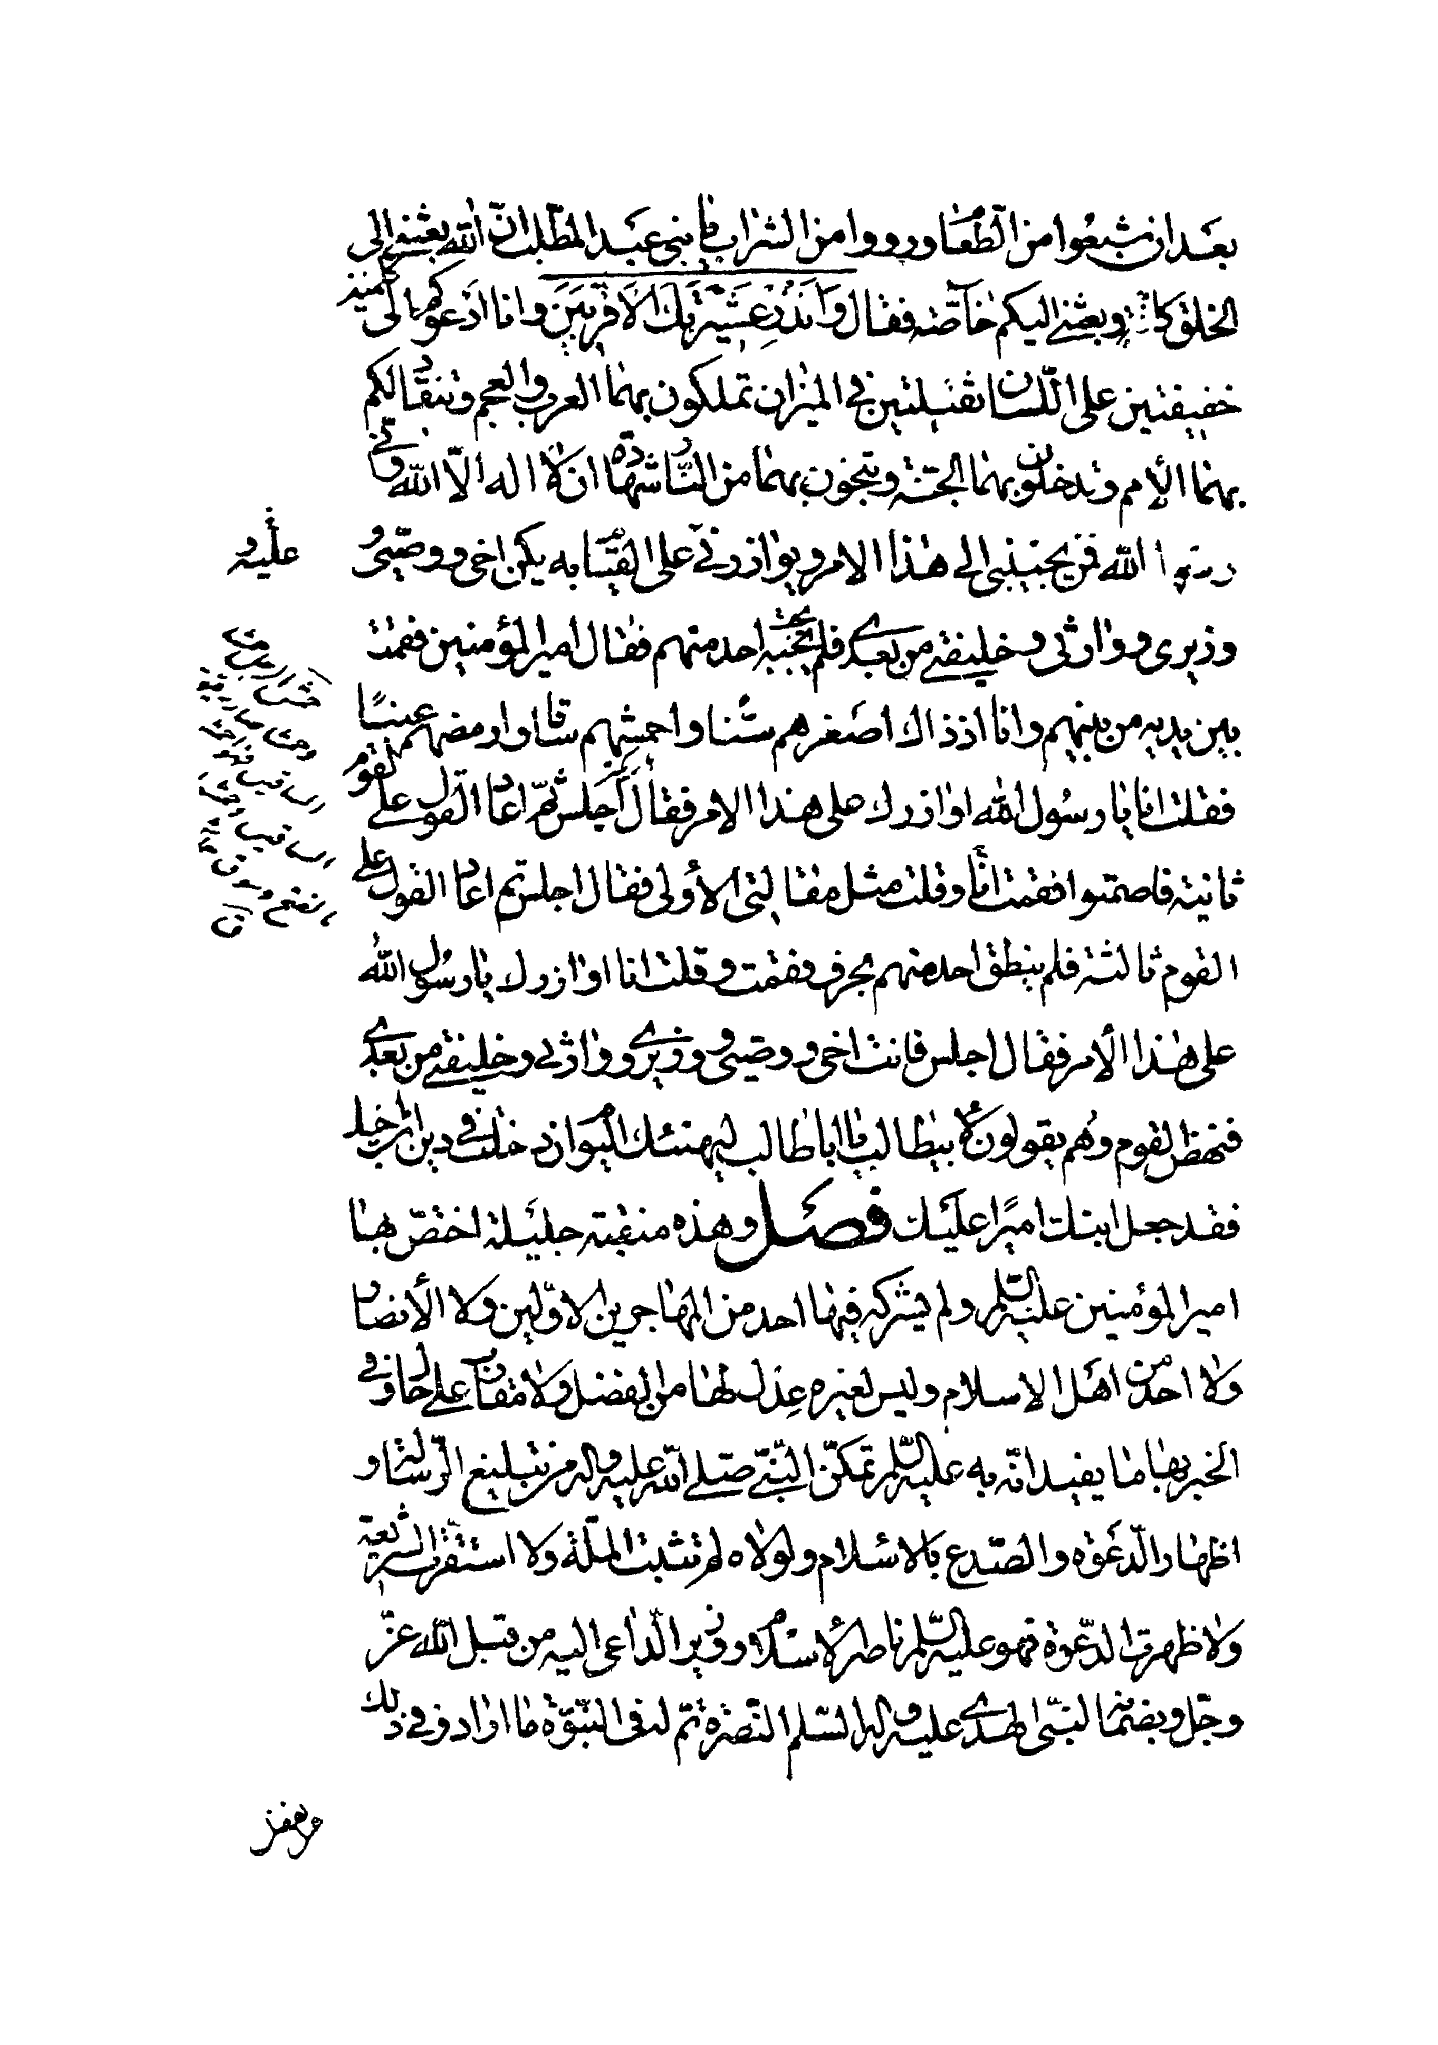 بعد ان شبعوا من الطعام ورووا من الشراب يا بني عبد المطلب ان الله بعثني الى
الخلق كافة وبعثني اليكم خاصة فقال وَاَنْذِرْ عَشيرَتَكَ الْاَقْرَبينَ وانا ادعوكم الى كلمتين
خفيفتين على اللسان ثقيلتين في الميزان تملكون بهما العرب والعجم وتنقاد لكم
بهما الأمم وتدخلون بهما الجنة وتنجون بهما من النار شهادة ان لا اله الا الله واني
رسول الله فمن يجيبني الى هذا الامر ويوازرني على القيام به يكن اخي ووصيي و
وزيري ووارثي وخليفتي من بعدي فلم يجبه احد منهم فقال امير المؤمنين فقمت
بين يديه من بينهم وانا اذ ذاك اصغرهم سنا واحمشهم ساقا وارمضهم عينًا
فقلت انا يا رسول الله اوازرك على هذا الامر فقال اجلس ثم اعاد القول على القوم
ثانية فاصمتوا فقمت انا وقلت مثل مقالتي الأولى فقال اجلس ثم اعاد القول على
القوم ثالثة فلم ينطق احد منهم بحرف فقمت وقلت انا اوازرك يا رسول الله
على هذا الأمر فقال اجلس فانت اخي ووصيي ووزيري ووارثي وخليفتي من بعدي
فنهض القوم وهم يقولون لأبيطالب يا اباطالب ليهنئك اليوم ان دخلت في دين ابن اخيك
فقد جعل ابنك اميرًا عليك فصل وهذه منقبة جليلة اختص بها
امير المؤمنين عليه السلم ولم يشركه فيها احد من المهاجرين الاولين ولا الأنصار
ولا احد من اهل الاسلام وليس لغيره عِدل لها من الفضل ولا مقارب على حال وفي
الخبر بها ما يفيد انه به عليه السلم تمكن النبي صلى الله عليه واله من تبليغ الرسالة و
اظهار الدعوة والصدع بالاسلام ولولاه لم تثبت الملة ولا استقرت الشريعة
ولا ظهرت الدعوة فهو عليه السلم ناصر الاسلام ووزير الداعي اليه من قبل الله عز
وجل وبضمانه لنبي الهدى عليه واله السلم النصرة تم له في النبوة ما اراد وفي ذلك
عليه و